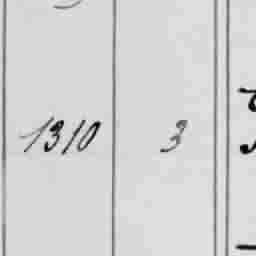 1310 3